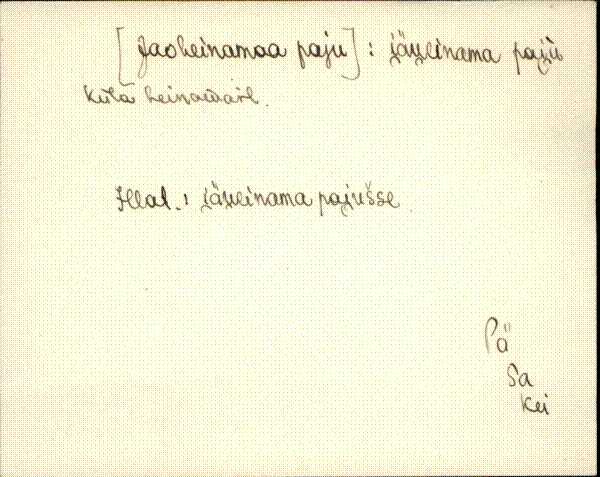 [Jaoheinamaa paju] : jäu̯einama pajù
külä heinamàit.
Illat. : jäu̯einama pajušse
Pä
Sa
Kei